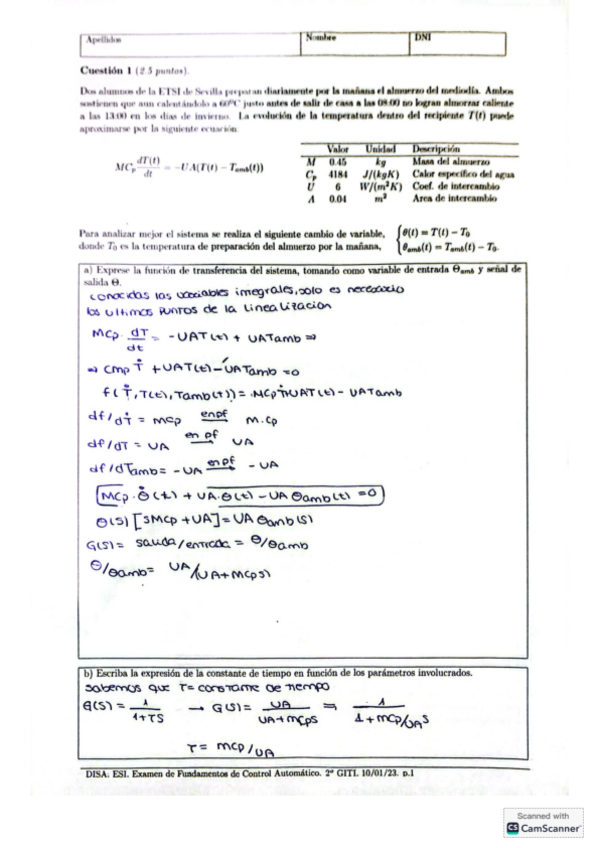 Apellidos Nombre DNI
Cuestión 1 (2.5 puntos).
Dos alumnos de la ETSI de Sevilla preparan diariamente por la mañana el almuerzo del mediodía. Ambos
sostienen que aun calentándolo a 60ºC justo antes de salir de casa a las 08:00 no logran almorzar caliente
a las 13:00 en los días de invierno. La evolución de la temperatura dentro del recipiente T(t) puede
aproximarse por la siguiente ecuación:
MCp dT(t)/dt = −UA(T(t) − Tamb(t))
Valor Unidad Descripción
M 0.45 kg Masa del almuerzo
Cp 4184 J/(kgK) Calor específico del agua
U 6 W/(m²K) Coef. de intercambio
A 0.04 m² Area de intercambio
Para analizar mejor el sistema se realiza el siguiente cambio de variable,
donde T0 es la temperatura de preparación del almuerzo por la mañana,
{θ(t) = T(t) − T0
θamb(t) = Tamb(t) − T0.
a) Exprese la función de transferencia del sistema, tomando como variable de entrada Θamb y señal de
salida Θ.
conocidas las variables integrales, solo es necesario
los ultimos puntos de la linealización
MCp · dT/dt = -UAT(t) + UATamb ⇒
⇒ CmpṪ + UAT(t) - UATamb = 0
f(Ṫ, T(t), Tamb(t)) = MCpṪ+UAT(t) - UATamb
df/dṪ = mcp en pf → M.Cp
df/dT = UA en pf → UA
df/dTamb = -UA en pf → -UA
MCp · θ̇(t) + UA·θ(t) - UAθamb(t) = 0
θ(s) [SMCp + UA] = UA θamb(s)
G(s) = salida/entrada = θ/θamb
θ/θamb = UA/(UA+MCpS)
b) Escriba la expresión de la constante de tiempo en función de los parámetros involucrados.
Sabemos que τ = constante de tiempo
G(s) = 1/(1+τS) → G(s) = UA/(UA+mcpS) ⇒ 1/(1+mcp/UA S)
τ = mcp/UA
DISA. ESI. Examen de Fundamentos de Control Automático. 2º GITI. 10/01/23. p.1
Scanned with
CS CamScanner